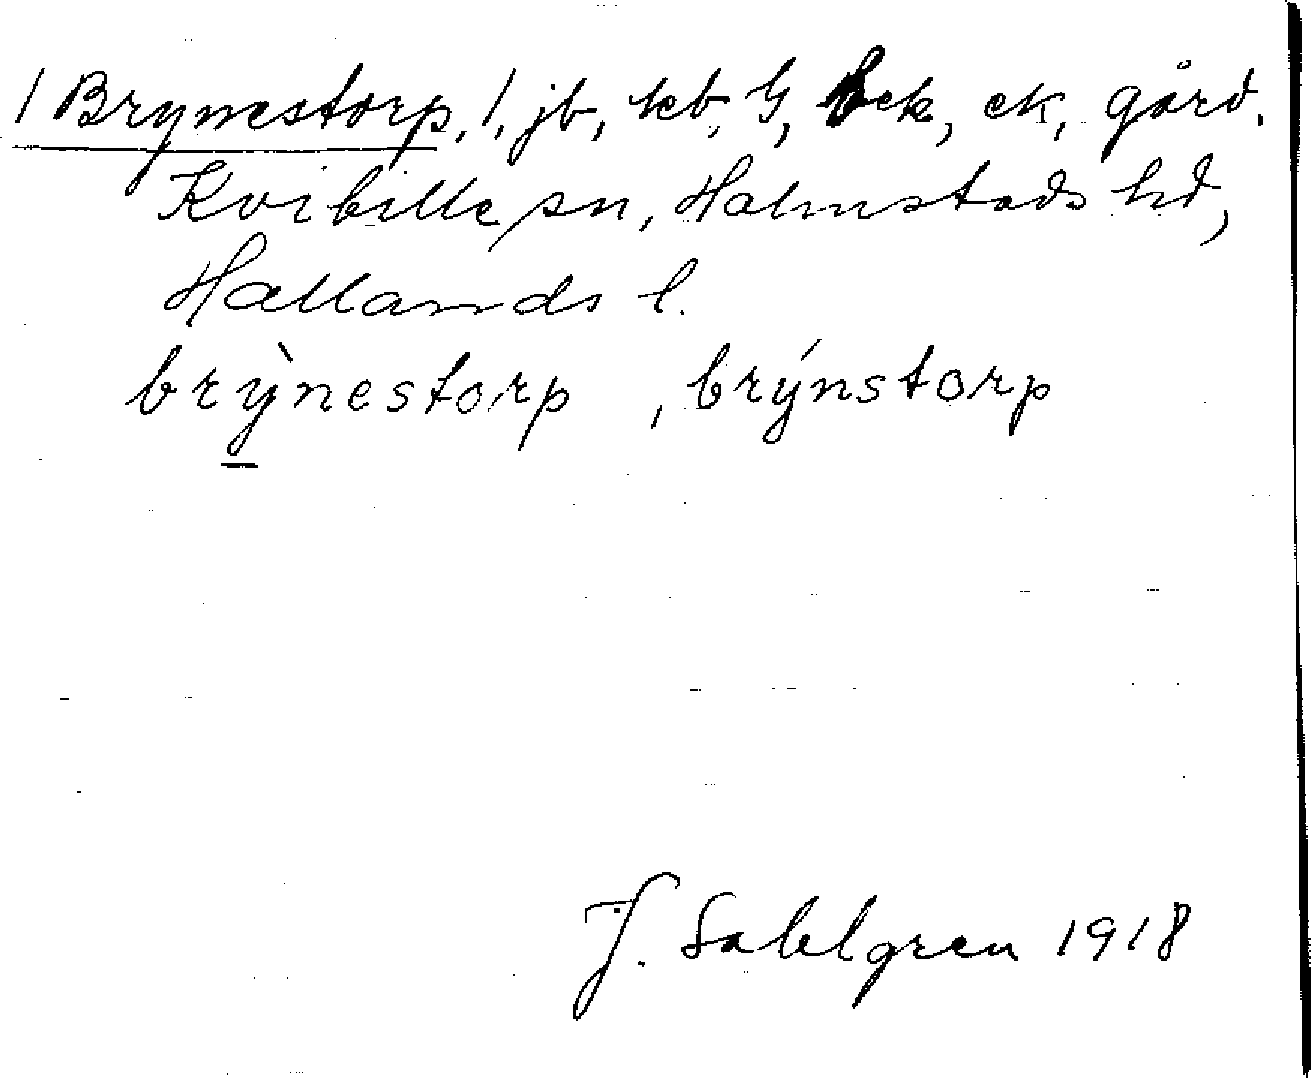 / Brynestorp, /, jb, kb, G, Eek, ek, gård.
Kvibille sn, Halmstads hd,
Hallands l.
brỳnestorp , brýnstorp
J. Sahlgren 1918